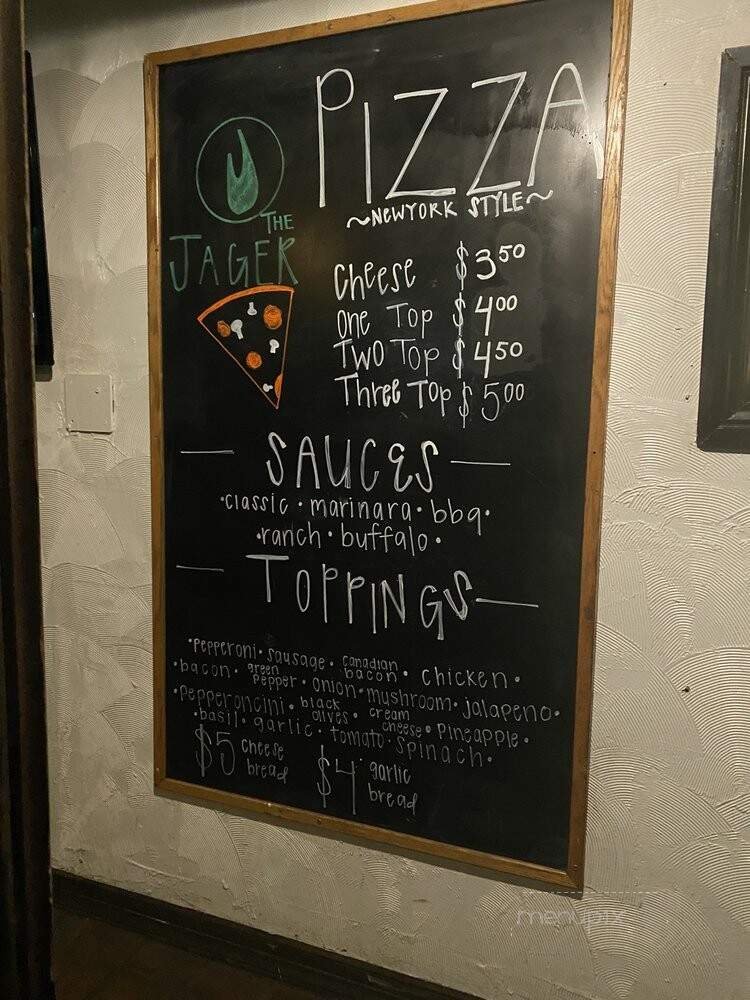 PIZZA
~NEWYORK STYLE~
THE
JAGER
Cheese $3.50
One Top $4.00
Two Top $4.50
Three Top $5.00
SAUCES
•classic • marinara • bbq•
•ranch • buffalo•
TOPPINGS
•pepperoni• sausage • canadian bacon • chicken •
•bacon • green pepper • onion • mushroom • jalapeno•
•pepperoncini • black olives • cream cheese • pineapple •
•basil • garlic • tomato • spinach •
$5 cheese bread $4 garlic bread
menupix